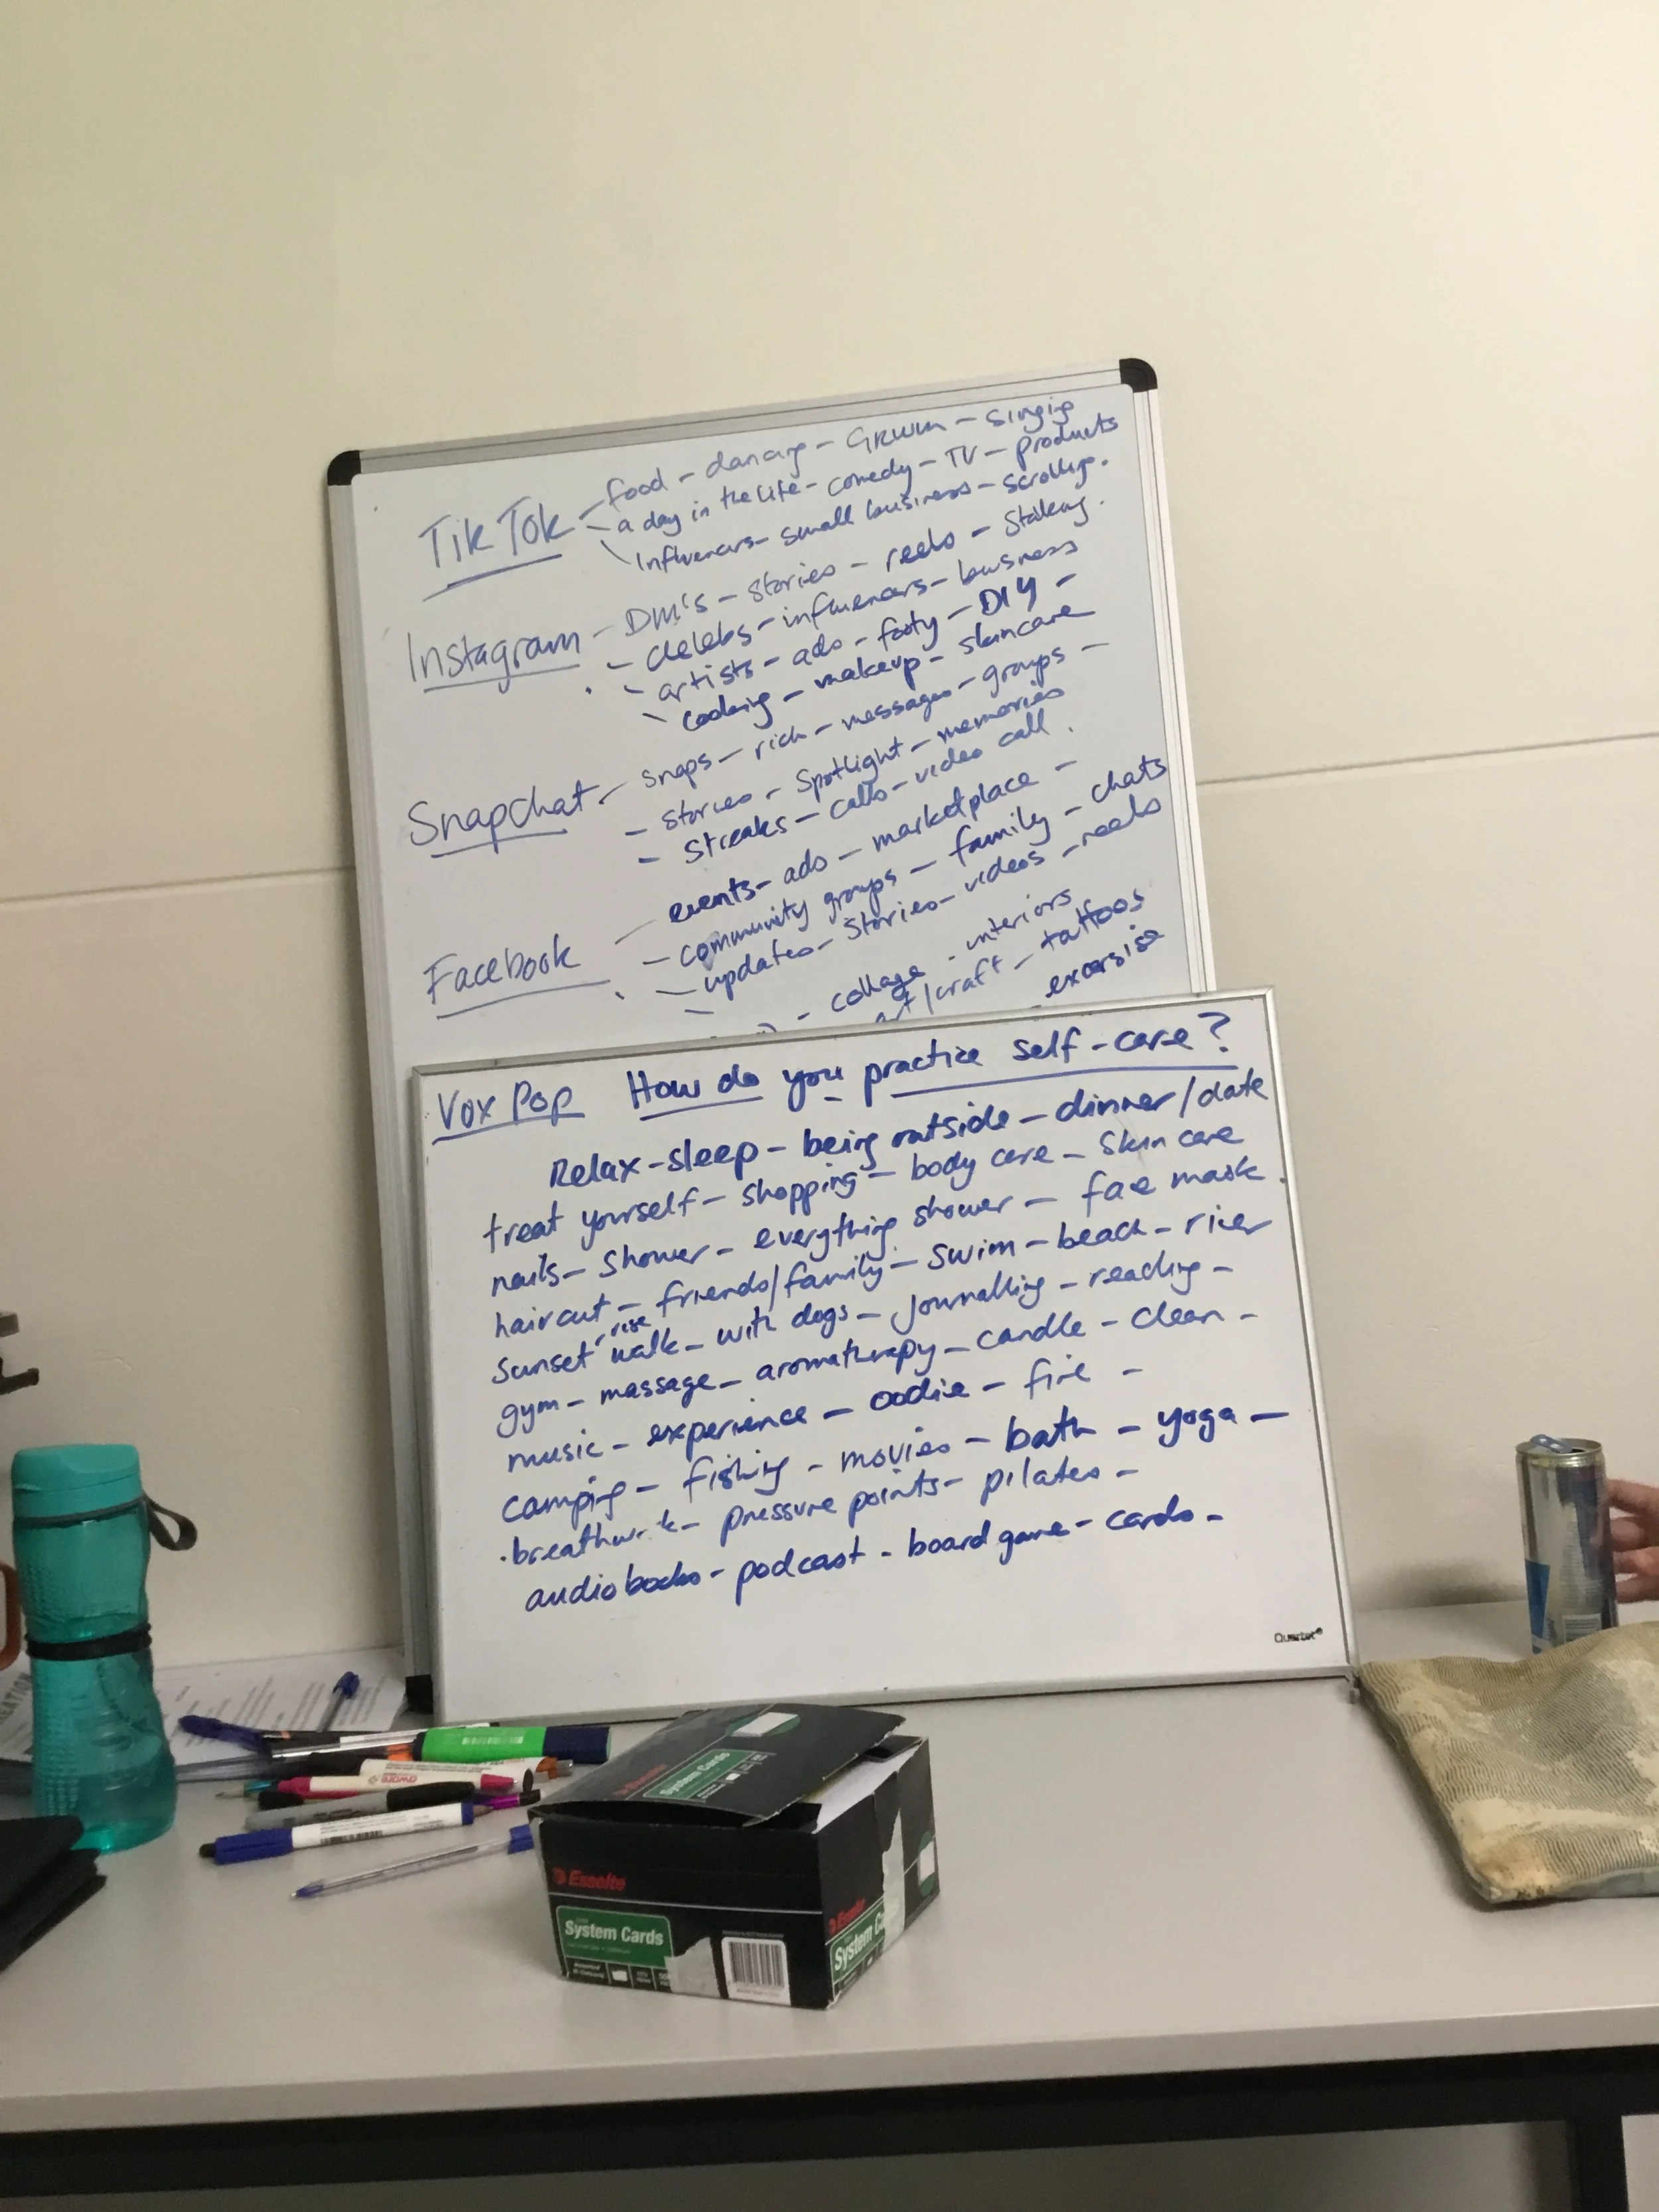 Tik Tok - food - dancing - GRWM - singing
- a day in the life - comedy - TV - products
- Influencers - small business - scrolling.
Instagram - DM's - stories - reels - stalking.
- celebs - influencers - business
- artists - ads - footy - DIY -
- cooking - makeup - skincare
Snapchat - snaps - rich - messages - groups -
- stories - spotlight - memories
- streaks - calls - video call.
Facebook - events - ads - marketplace -
- community groups - family - chats
- updates - stories - videos - reels
- collage - interiors
art/craft - tattoos
- excersise
Vox Pop How do you practice self-care?
Relax - sleep - being outside - dinner/date
treat yourself - shopping - body care - skin care
nails - shower - everything shower - face mask.
haircut - friends/family - swim - beach - river
sunset/rise walk - with dogs - journalling - reading -
gym - massage - aromatherapy - candle - clean -
music - experience - oodie - fire -
camping - fishing - movies - bath - yoga -
breathwork - pressure points - pilates -
audiobooks - podcast - board game - cards -
Quartet
System Cards
Esselte
Esselte
System Cards
System Ca
aware